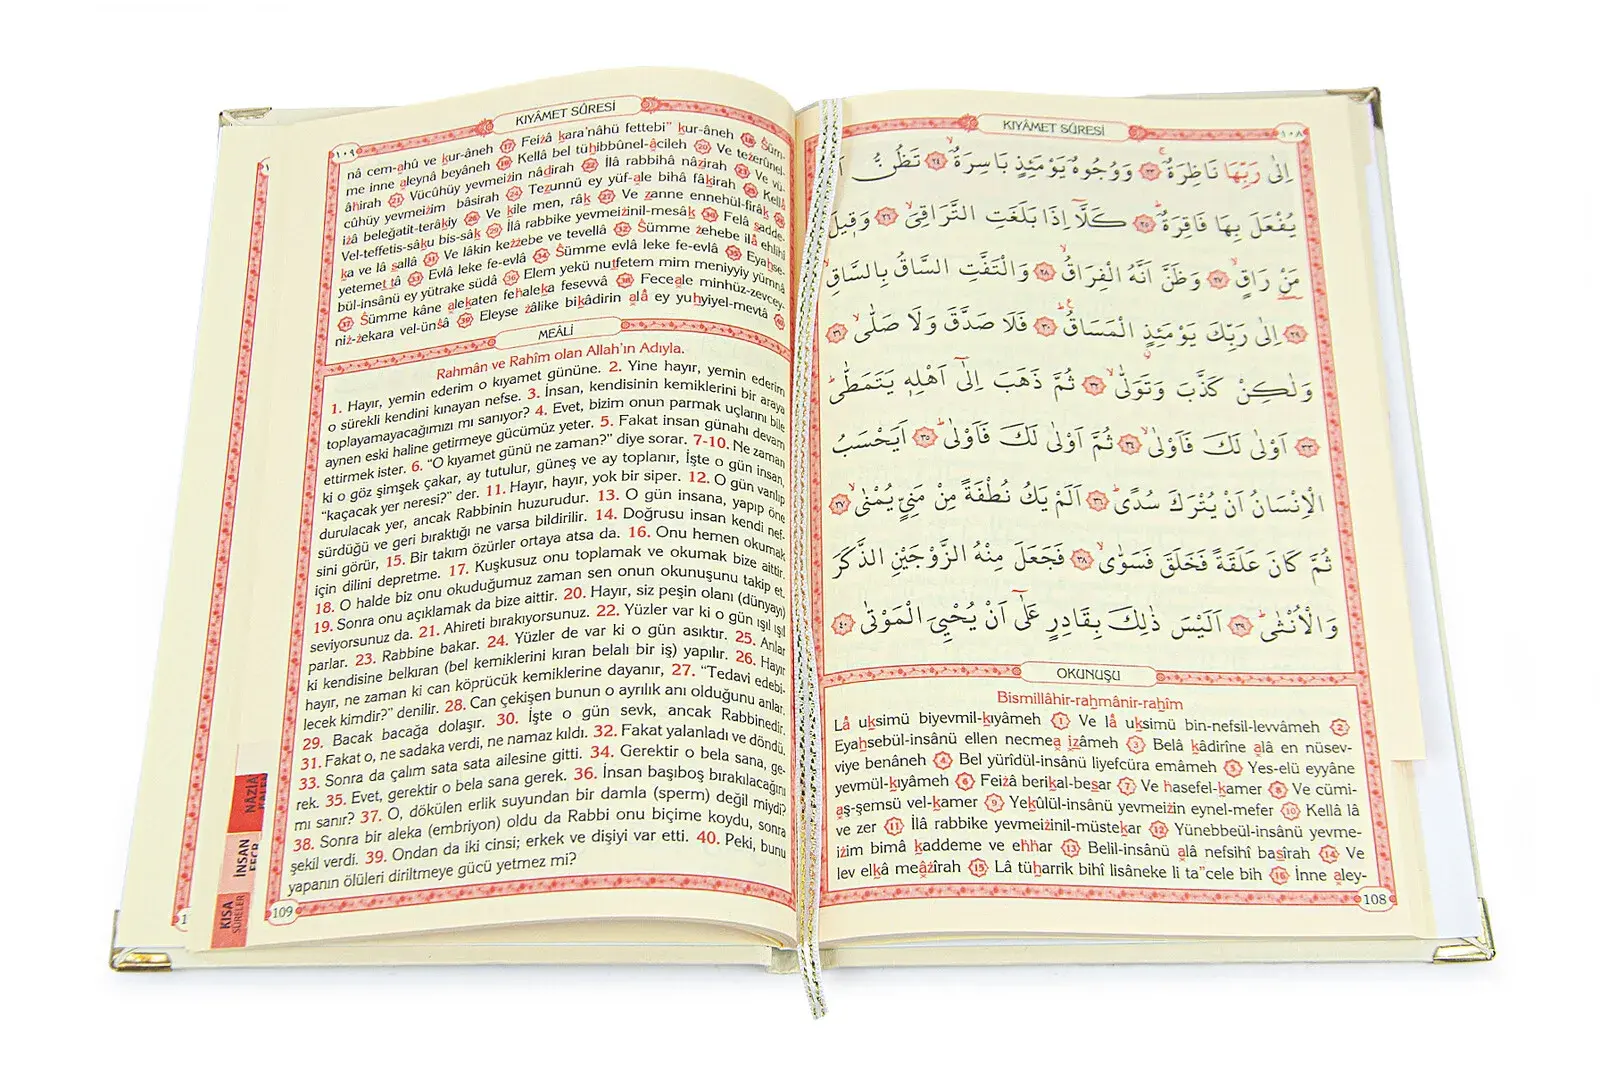 KIYÂMET SÛRESİ
١٠٨
اِلٰى رَبِّهَا نَاظِرَةٌ ﴿٢٣﴾ وَوُجُوهٌ يَوْمَئِذٍ بَاسِرَةٌ ﴿٢٤﴾ تَظُنُّ
يُفْعَلَ بِهَا فَاقِرَةٌ ﴿٢٥﴾ كَلَّٓا اِذَا بَلَغَتِ التَّرَاقِيَ ﴿٢٦﴾ وَقِيلَ
مَنْ رَاقٍ ﴿٢٧﴾ وَظَنَّ اَنَّهُ الْفِرَاقُ ﴿٢٨﴾ وَالْتَفَّتِ السَّاقُ بِالسَّاقِ
﴿٢٩﴾ اِلٰى رَبِّكَ يَوْمَئِذٍ الْمَسَاقُ ﴿٣٠﴾ فَلَا صَدَّقَ وَلَا صَلّٰى ﴿٣١﴾
وَلٰكِنْ كَذَّبَ وَتَوَلّٰى ﴿٣٢﴾ ثُمَّ ذَهَبَ اِلٰٓى اَهْلِه۪ يَتَمَطّٰى
﴿٣٣﴾ اَوْلٰى لَكَ فَاَوْلٰى ﴿٣٤﴾ ثُمَّ اَوْلٰى لَكَ فَاَوْلٰى ﴿٣٥﴾ اَيَحْسَبُ
الْاِنْسَانُ اَنْ يُتْرَكَ سُدًى ﴿٣٦﴾ اَلَمْ يَكُ نُطْفَةً مِنْ مَنِيٍّ يُمْنٰى ﴿٣٧﴾
ثُمَّ كَانَ عَلَقَةً فَخَلَقَ فَسَوّٰى ﴿٣٨﴾ فَجَعَلَ مِنْهُ الزَّوْجَيْنِ الذَّكَرَ
وَالْاُنْثٰى ﴿٣٩﴾ اَلَيْسَ ذٰلِكَ بِقَادِرٍ عَلٰٓى اَنْ يُحْيِيَ الْمَوْتٰى ﴿٤٠﴾
OKUNUŞU
Bismillâhir-rahmânir-rahîm
Lâ uksimü biyevmil-kıyâmeh 1 Ve lâ uksimü bin-nefsil-levvâmeh 2
Eyahsebül-insânü ellen necmea izâmeh 3 Belâ kâdirîne alâ en nüsev-
viye benâneh 4 Bel yürîdül-insânü liyefcüra emâmeh 5 Yes-elü eyyâne
yevmül-kıyâmeh 6 Feiżâ berikal-besar 7 Ve hasefel-kamer 8 Ve cümi-
aş-şemsü vel-kamer 9 Yekûlül-insânü yevmeizin eynel-mefer 10 Kellâ lâ
ve zer 11 İlâ rabbike yevmeiżinil-müstekar 12 Yünebbeül-insânü yevme-
iżim bimâ kaddeme ve ehhar 13 Belil-insânü alâ nefsihî basîrah 14 Ve
lev elkâ meâżîrah 15 Lâ tüharrik bihî lisâneke li ta”cele bih 16 İnne aley-
108
KIYÂMET SÛRESİ
١٠٩
nâ cem-ahû ve kur-âneh 17 Feiżâ kara’nâhü fettebi” kur-âneh 18 Süm-
me inne aleynâ beyâneh 19 Kellâ bel tühibbûnel-âcileh 20 Ve teżerûnel-
âhirah 21 Vücûhüy yevmeizin nâdirah 22 İlâ rabbihâ nâzirah 23 Ve vü-
cûhüy yevmeizim bâsirah 24 Tezunnü ey yüf-ale bihâ fâkirah 25 Kellâ
iżâ beleğatit-terâkiy 26 Ve kîle men, râk 27 Ve zanne ennehül-firâk 28
Vel-teffetis-sâku bis-sâk 29 İlâ rabbike yevmeiżinil-mesâk 30 Felâ sadde-
ka ve lâ sallâ 31 Ve lâkin keżżebe ve tevellâ 32 Sümme żehebe ilâ ehlihî
yetemettâ 33 Evlâ leke fe-evlâ 34 Sümme evlâ leke fe-evlâ 35 Eyahse-
bül-insânü ey yütrake südâ 36 Elem yekü nutfetem mim meniyyiy yümnâ
37 Sümme kâne alekaten fehaleka fesevvâ 38 Feceale minhüz-zevcey-
niż-żekara vel-ünsâ 39 Eleyse żâlike bikâdirin alâ ey yuhyiyel-mevtâ 40
MEÂLİ
Rahmân ve Rahîm olan Allah’ın Adıyla.
1. Hayır, yemin ederim o kıyamet gününe. 2. Yine hayır, yemin ederim
o sürekli kendini kınayan nefse. 3. İnsan, kendisinin kemiklerini bir araya
toplayamayacağımızı mı sanıyor? 4. Evet, bizim onun parmak uçlarını bile
aynen eski haline getirmeye gücümüz yeter. 5. Fakat insan günahı devam
ettirmek ister. 6. “O kıyamet günü ne zaman?” diye sorar. 7-10. Ne zaman
ki o göz şimşek çakar, ay tutulur, güneş ve ay toplanır, İşte o gün insan,
“kaçacak yer neresi?” der. 11. Hayır, hayır, yok bir siper. 12. O gün varılıp
durulacak yer, ancak Rabbinin huzurudur. 13. O gün insana, yapıp öne
sürdüğü ve geri bıraktığı ne varsa bildirilir. 14. Doğrusu insan kendi nef-
sini görür, 15. Bir takım özürler ortaya atsa da. 16. Onu hemen okumak
için dilini depretme. 17. Kuşkusuz onu toplamak ve okumak bize aittir.
18. O halde biz onu okuduğumuz zaman sen onun okunuşunu takip et.
19. Sonra onu açıklamak da bize aittir. 20. Hayır, siz peşin olanı (dünyayı)
seviyorsunuz da. 21. Ahireti bırakıyorsunuz. 22. Yüzler var ki o gün ışıl ışıl
parlar. 23. Rabbine bakar. 24. Yüzler de var ki o gün asıktır. 25. Anlar
ki kendisine belkıran (bel kemiklerini kıran belalı bir iş) yapılır. 26. Hayır
hayır, ne zaman ki can köprücük kemiklerine dayanır, 27. “Tedavi edebi-
lecek kimdir?” denilir. 28. Can çekişen bunun o ayrılık anı olduğunu anlar.
29. Bacak bacağa dolaşır. 30. İşte o gün sevk, ancak Rabbinedir.
31. Fakat o, ne sadaka verdi, ne namaz kıldı. 32. Fakat yalanladı ve döndü,
33. Sonra da çalım sata sata ailesine gitti. 34. Gerektir o bela sana, ge-
rek. 35. Evet, gerektir o bela sana gerek. 36. İnsan başıboş bırakılacağını
mı sanır? 37. O, dökülen erlik suyundan bir damla (sperm) değil miydi?
38. Sonra bir aleka (embriyon) oldu da Rabbi onu biçime koydu, sonra
şekil verdi. 39. Ondan da iki cinsi; erkek ve dişiyi var etti. 40. Peki, bunu
yapanın ölüleri diriltmeye gücü yetmez mi?
109
İNSAN
KISA
SÛRELER